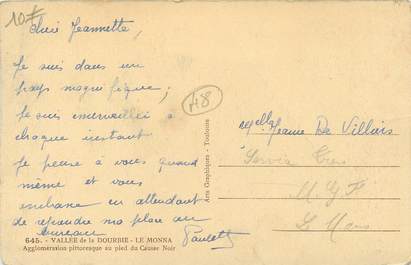 10F
Chère Jeannette,
Je suis dans un
pays magnifique;
Je suis émerveillée à
chaque instant
Je pense à vous quand
même et vous
embrasse en attendant
de reprendre ma place au
bureau
Paulette
48
Arts Graphiques - Toulouse
Melle Jeanne De Villais
Service
Le Mans
645. - VALLÉE de la DOURBIE - LE MONNA
Agglomération pittoresque au pied du Causse Noir